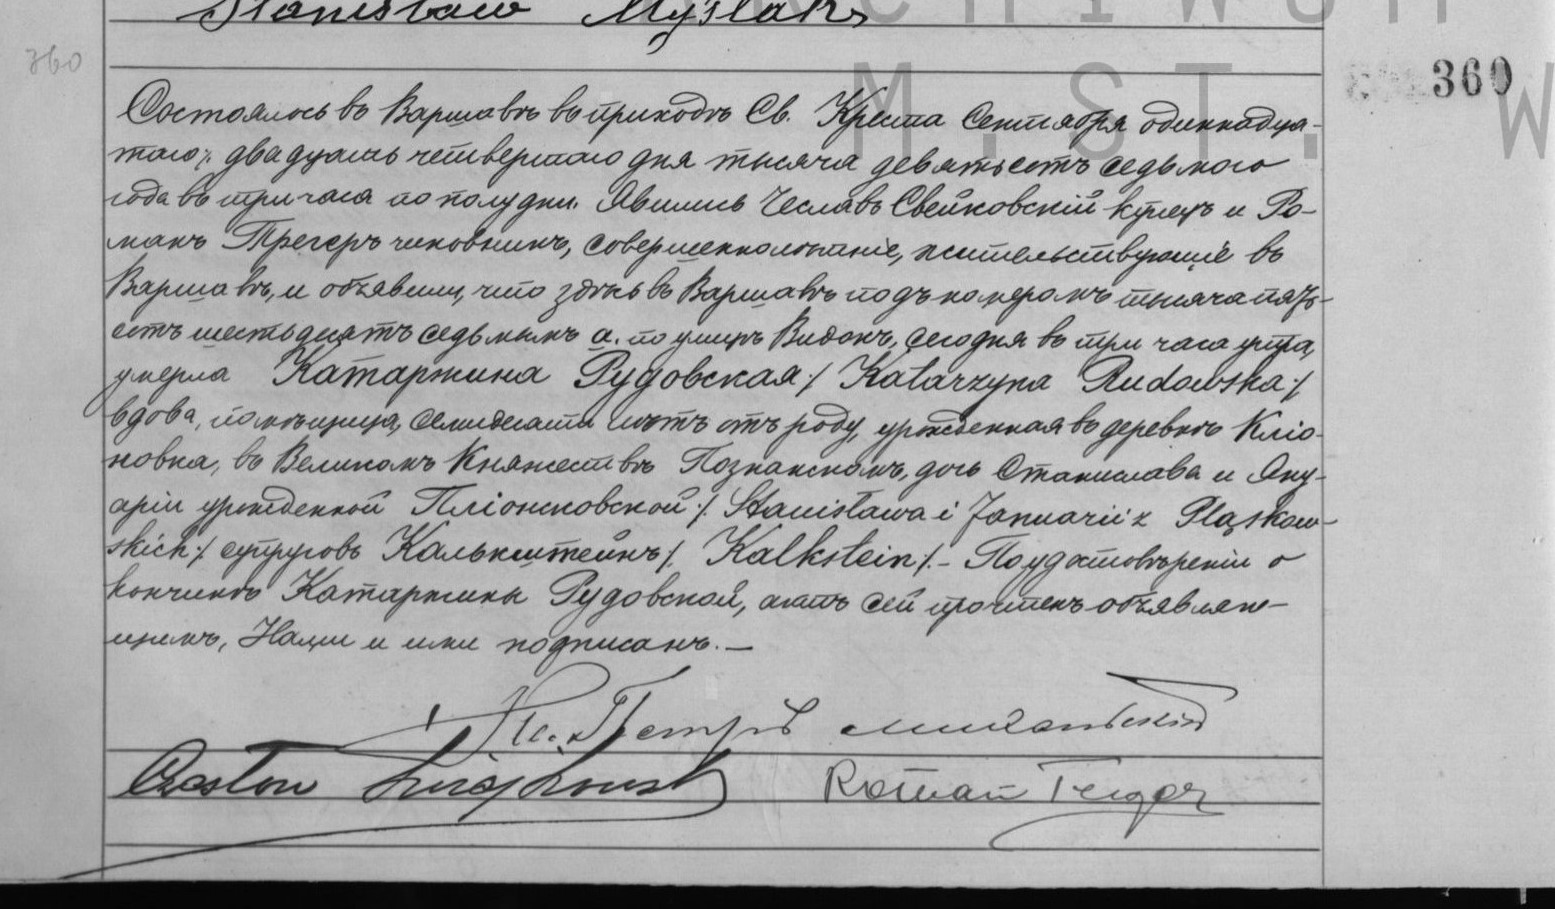 Stanisław Myślak
360
360
M. ST. W
Состоялось въ Варшавѣ въ приходѣ Св. Креста Сентября одиннадца-
таго /. двадцать четвертаго дня тысяча девятьсотъ седьмого
года въ три часа по полудни. Явились Чеславъ Свейковскій купецъ и Ро-
манъ Трегеръ чиновникъ, совершеннолѣтніе, жительствующіе въ
Варшавѣ, и объявили, что здѣсь въ Варшавѣ подъ номеромъ тысяча пять-
сотъ шестьдесятъ седьмымъ а. по улицѣ Видокъ, сегодня въ три часа утра,
умерла Катаржина Рудовская ./ Katarzyna Rudowska ./
вдова, помѣщица, семидесяти лѣтъ отъ роду, урожденная въ деревнѣ Кліо-
новка, въ Великомъ Княжествѣ Познанскомъ, дочь Станислава и Яну-
аріи урожденной Пліонсковской ./. Stanisława i Januarii z Pląskow-
skich ./ супруговъ Калькштейнъ ./. Kalkstein ./. – По удостовѣреніи о
кончинѣ Катаржины Рудовской, актъ сей прочтенъ объявляю-
щимъ, Нами и ими подписанъ. –
Кс. Петръ
Roman Treger